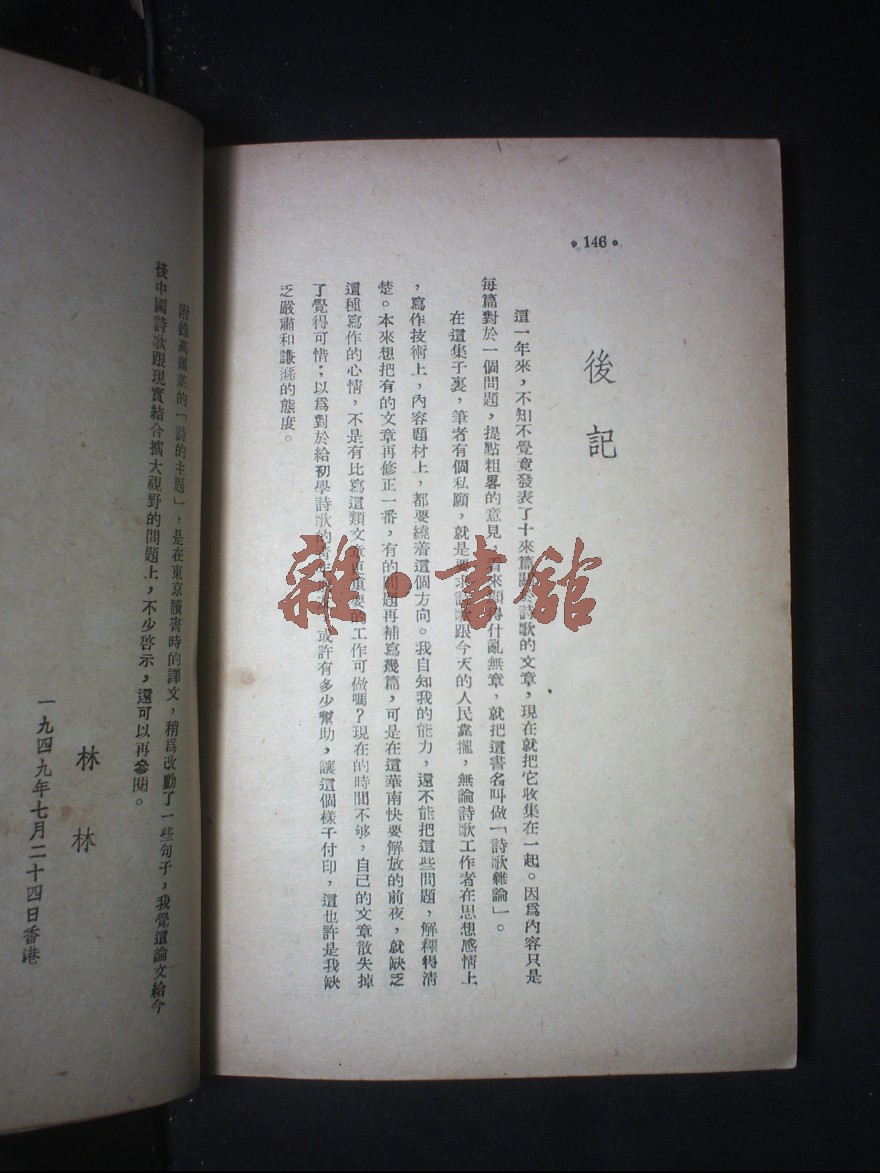 •146•
後記
這一年來，不知不覺竟發表了十來篇關於詩歌的文章，現在就把它收集在一起。因爲內容只是
每篇對於一個問題，提點粗畧的意見，看來顯得什亂無章，就把這書名叫做「詩歌雜論」。
在這集子裏，筆者有個私願，就是要求詩歌跟今天的人民靠攏，無論詩歌工作者在思想感情上
，寫作技術上，內容題材上，都要繞着這個方向。我自知我的能力，還不能把這些問題，解釋得清
楚。本來想把有的文章再修正一番，有的問題再補寫幾篇，可是在這華南快要解放的前夜，就缺乏
這種寫作的心情，不是有比寫這類文章更重要的工作可做嗎？現在的時間不够，自己的文章散失掉
了覺得可惜；以爲對於給初學詩歌的青年，或許有多少幫助，讓這個樣子付印，這也許是我缺
乏嚴肅和謙遜的態度。
附錄高爾基的「詩的主題」，是在東京讀書時的譯文，稍爲改動了一些句子，我覺這論文給今
後中國詩歌跟現實結合擴大視野的問題上，不少啓示，還可以再參閱。
林林
一九四九年七月二十四日香港
雜·書館